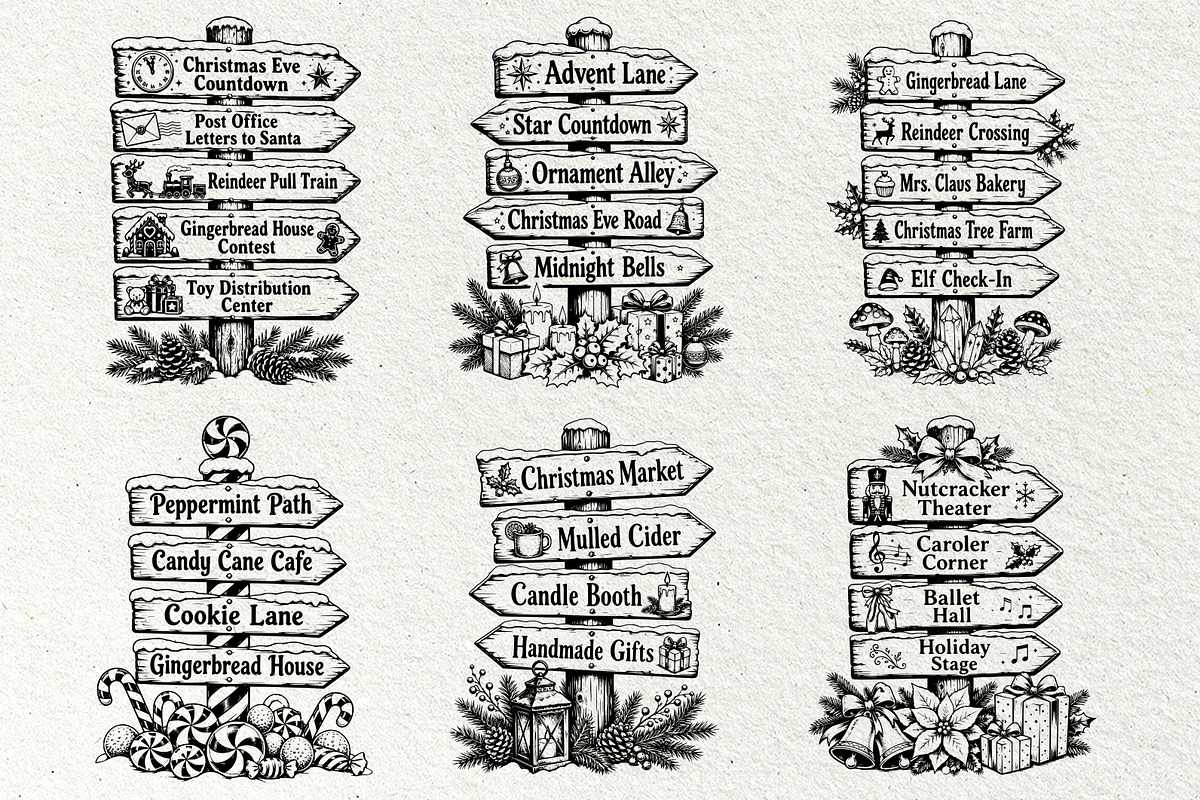 Christmas Eve
Countdown
Post Office
Letters to Santa
Reindeer Pull Train
Gingerbread House
Contest
Toy Distribution
Center
Advent Lane
Star Countdown
Ornament Alley
Christmas Eve Road
Midnight Bells
Gingerbread Lane
Reindeer Crossing
Mrs. Claus Bakery
Christmas Tree Farm
Elf Check-In
Peppermint Path
Candy Cane Cafe
Cookie Lane
Gingerbread House
Christmas Market
Mulled Cider
Candle Booth
Handmade Gifts
Nutcracker
Theater
Caroler
Corner
Ballet
Hall
Holiday
Stage